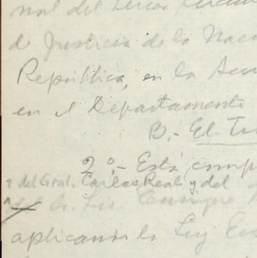 nal del Tercer
de Justicia de la Nac
República, en la
en el Departamento
B.- El
2º.- Esta
del Gral. Carlos Real y del
Lic.
aplicando la Ley